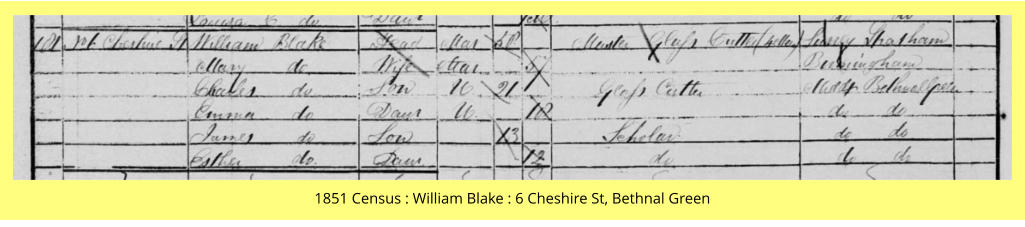 Louisa E do Daur
181 No 6 Cheshire St William Blake Head Mar 50 Master Glass Cutter Surrey Stratham
Mary do Wife Mar 51 Birmingham
Charles do Son U 21 Glass Cutter Middx Bethnal Green
Emma do Daur U 18 do do
James do Son 13 Scholar do do
Esther do Daur 12 do do do
1851 Census : William Blake : 6 Cheshire St, Bethnal Green